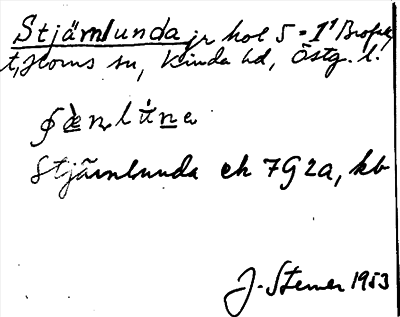 Stjärnlunda jr hol 5 = 1¹ Brofall
t, Horns sn, Kinda hd, Östg. l.
Stjärnlunda ek 7G2a, kb
J. Sterner 1953